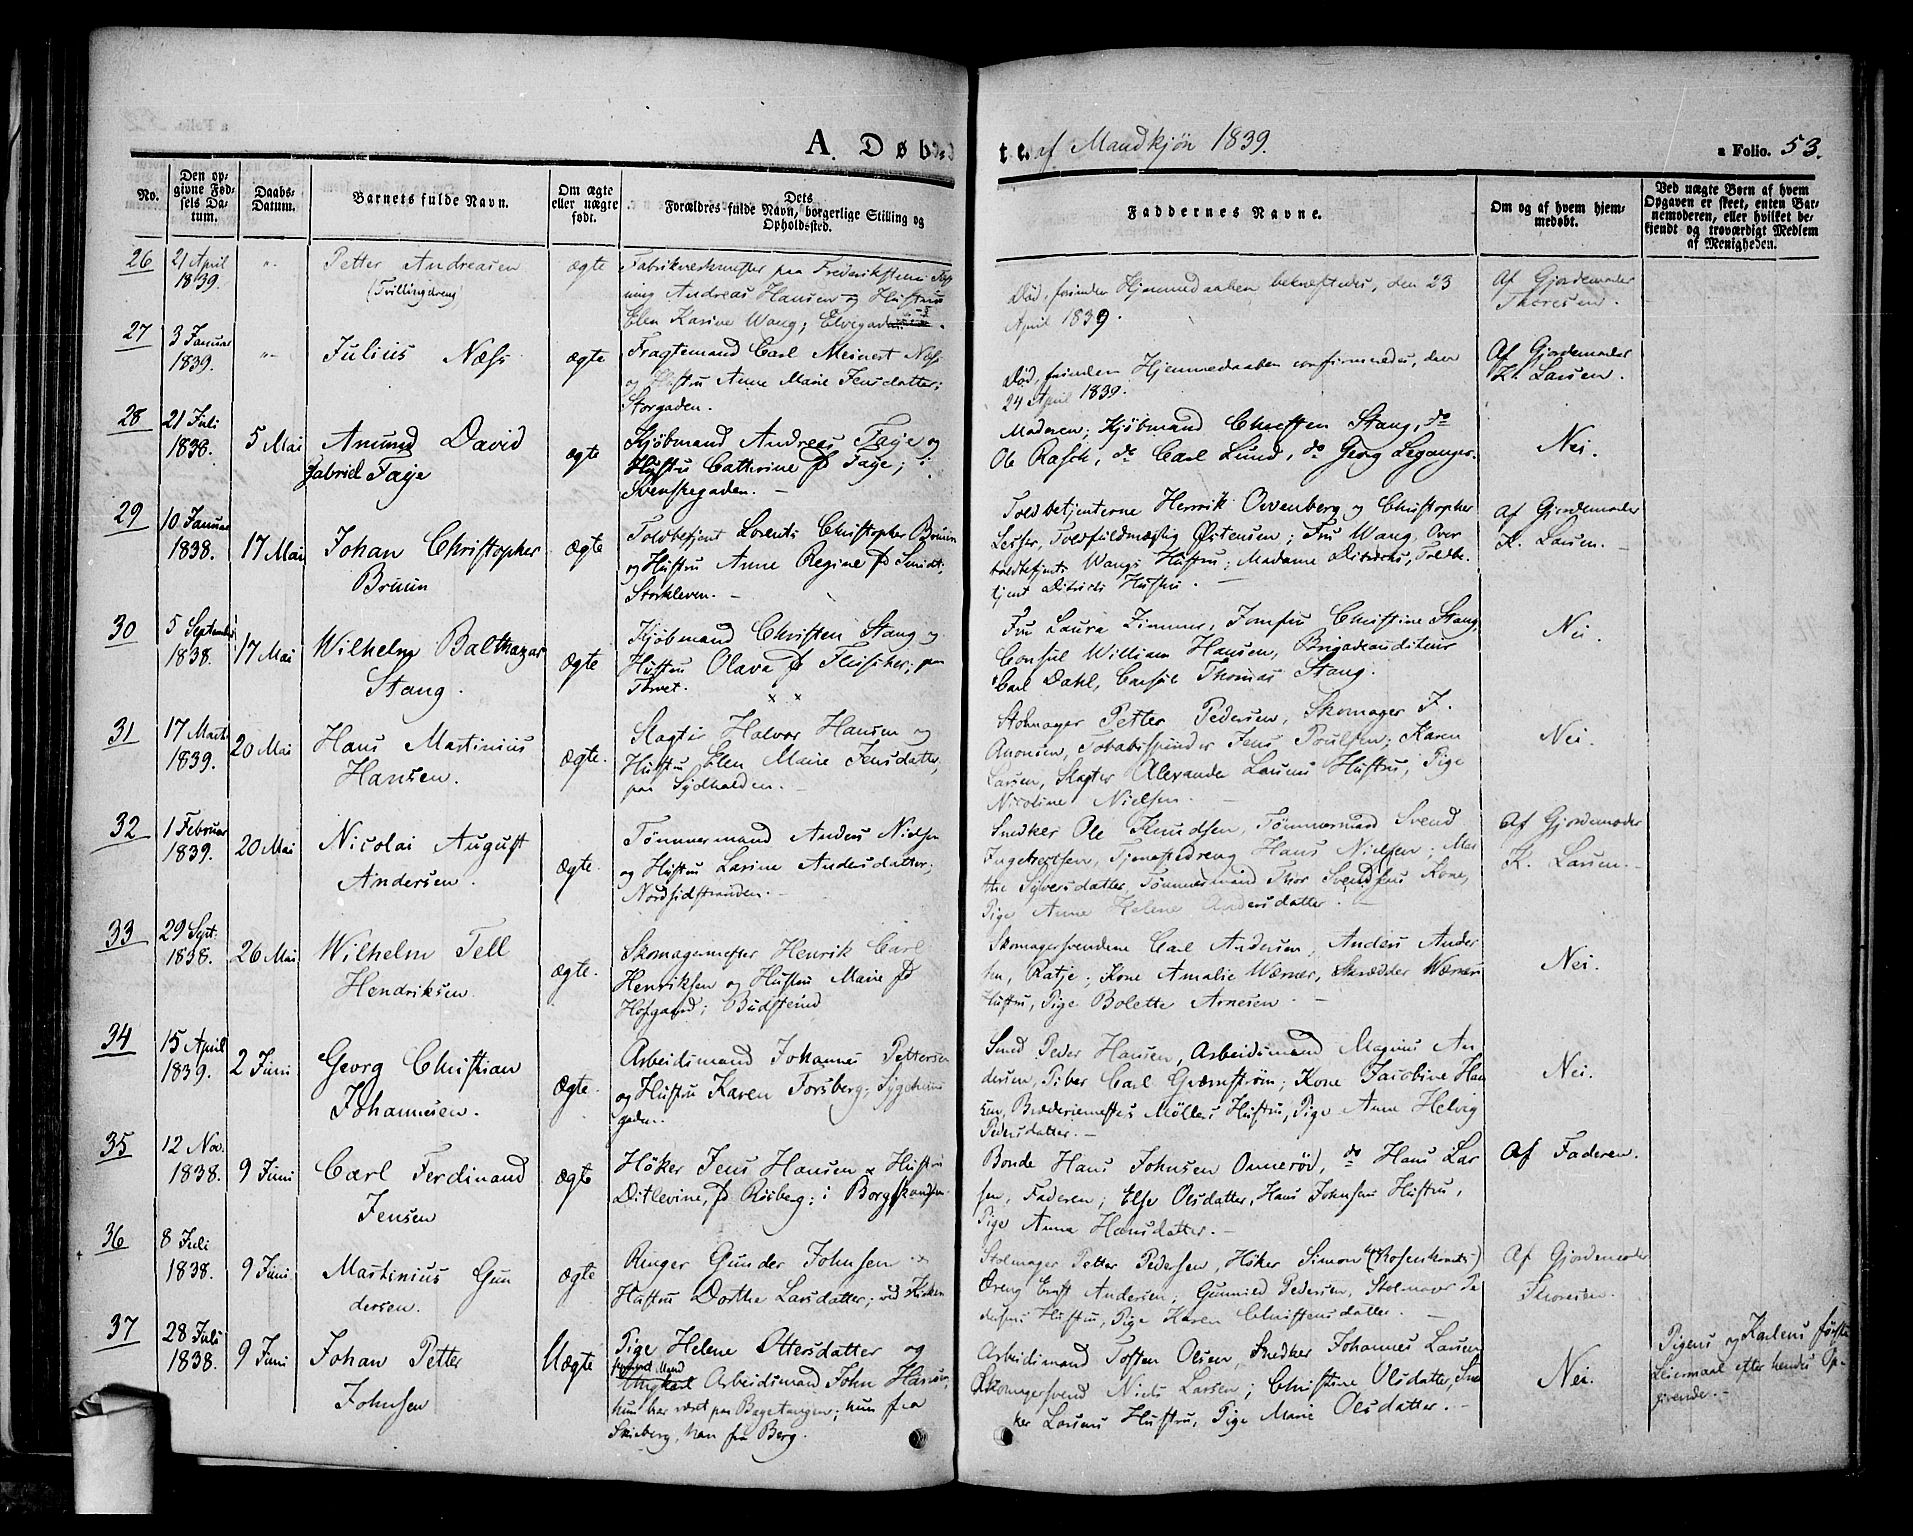 A. Døbte af Mandkjøn 1839.
a Folio. 53.
No.
Den opgivne Fødsels Datum.
Daabs-Datum.
Barnets fulde Navn.
Om ægte eller uægte født.
Dets Forældres fulde Navn, borgerlige Stilling og Opholdssted.
Faddernes Navne.
Om og af hvem hjemmedøbt.
Ved uægte Børn af hvem Opgaven er skeet, enten Barnemoderen, eller hvilket bekjendt og troværdigt Medlem af Menigheden.
26
21 April
1839.
"
Petter Andreasen
(Tvillingdreng)
ægte
Fabrikverkmester paa Frederikstens Fæst
ning Andreas Hansen og Hustru
Elen Karine Wang;
Død, forinden Hjemmedaaben bekræftedes, den 23
April 1839.
Af Gjordemoder
Thoresen.
27
3 Januar
1839.
"
Julius Næss
ægte
Fragtemand Carl Meinert Næss
og Hustru Anne Marie Jensdatter;
Storgaden.
Død, forinden Hjemmedaaben confirmeredes, den
24 April 1839.
Af Gjordemoder
K. Larsen.
28
21 Juli
1838.
5 Mai
Amund David
Gabriel Faye
ægte
Kjøbmand Andreas Faye og
Hustru Cathrine f Faye; i
Svenskegaden. –
Moderen; Kjøbmand Christen Stang, do
Ole Rasch, do Carl Lund, do Georg Leganger.
Nei.
29
10 Januar
1838.
17 Mai
Johan Christopher
Bruun
ægte
Toldbetjent Lorents Christopher Bruun
og Hustru Anne Regine f Smidt;
Storkleven. –
Toldbetjenterne Henrik Ovvenberg og Christopher
Lesser, Toldfuldmægtig Østensen; Fru Wang, Over
toldbetjent Wangs Hustru; Madame Ditrichs, Toldbe-
tjent Ditrichs Hustru. –
Af Gjordemoder
K. Larsen. –
30
5 September
1838.
17 Mai
Wilhelm Balthazar
Stang.
ægte
Kjøbmand Christen Stang og
Hustru Olava f Fleischer; paa
Torvet.
Fru Laura Zimmer, Jomfru Christine Stang,
Consul William Hansen, Brigadeauditeur
Carl Dahl, Consul Thomas Stang.
Nei.
31
17 Marts
1839.
20 Mai
Hans Martinius
Hansen.
ægte.
Slagter Halvor Hansen og
Hustru Elen Marie Jensdatter,
paa Sydhalden. –
Stolmager Petter Pedersen, Skomager J.
Anonsen, Tobakspinder Jens Poulsen; Karen
Larsen, Slagter Alexander Larsens Hustru, Pige
Nicoline Nielsen. –
Nei.
32
1 Februar
1839.
20 Mai
Nicolai August
Andersen.
ægte.
Tømmermand Anders Nielsen
og Hustru Larine Andersdatter;
Nordsidstranden. –
Snedker Ole Knudsen, Tømmermand Svend
Ingebretsen, Tjenestedreng Hans Nielsen; Mar
the Syversdatter, Tømmermand Thor Svendsens Kone,
Pige Anne Helene Andersdatter. –
Af Gjordemoder
K. Larsen. –
33
29 Sept.
1838.
26 Mai
Wilhelm Tell
Hendriksen.
ægte.
Skomagermester Henrik Carl
Henriksen og Hustru Marie f
Hofgaard;
Skomagersvendene Carl Andersen, Anders Ander
sen, Ratje; Kone Amalie Wærner, Skrædder Wærners
Hustru, Pige Bolette Arnesen. –
Nei.
34
15 April
1839.
2 Juni
Georg Christian
Johannesen.
ægte.
Arbeidsmand Johannes Pettersen
og Hustru Karen Forsberg; Sygehuus
gaden.
Smed Peder Hansen, Arbeidsmand Magnus An
dersen, Carl Grænstrøm; Kone Jacobine Han
sen, Møllers Hustru, Pige Anne Helvig
Pedersdatter. –
Nei.
35
12 Nov.
1838.
9 Juni
Carl Ferdinand
Jensen
ægte
Høker Jens Hansen & Hustru
Ditlevine, f Risberg; i Borgskandsen.
Bonde Hans Johnsen Onnerød, do Hans Lar
sen, Faderen; Else Olsdatter, Hans Johnsens Hustru,
Pige Anna Hansdatter. –
Af Faderen.
36
8 Juli
1838.
9 Juni
Martinius Gun
dersen.
ægte
Ringer Gunder Johnsen
Hustru Dorthe Larsdatter; ved Kirken
Stolmager Petter Pedersen, Høker Simon (Rosenkrants)
Dreng Andersen; Gunnild Pedersen, Stolmager Pe
dersens Hustru, Pige Karen Christensdatter. –
Af Gjordemoder
Thoresen.
37
28 Juli
1838.
9 Juni
Johan Petter
Johnsen
Uægte
Pige Helene Ottersdatter og
Ungkarl Arbeidsmand John Hansen;
hun har været paa Bagetangen; hun fra
Skieberg, han fra Berg.
Arbeidsmand Tosten Olsen, Snedker Johannes Larsen
Skomagersvend Niels Larsen; Christine Olsdatter, Sned
ker Larsens Hustru, Pige Marie Olsdatter. –
Nei.
Pigens og Karlens første
Leiermaal efter hendes Op-
givende. –